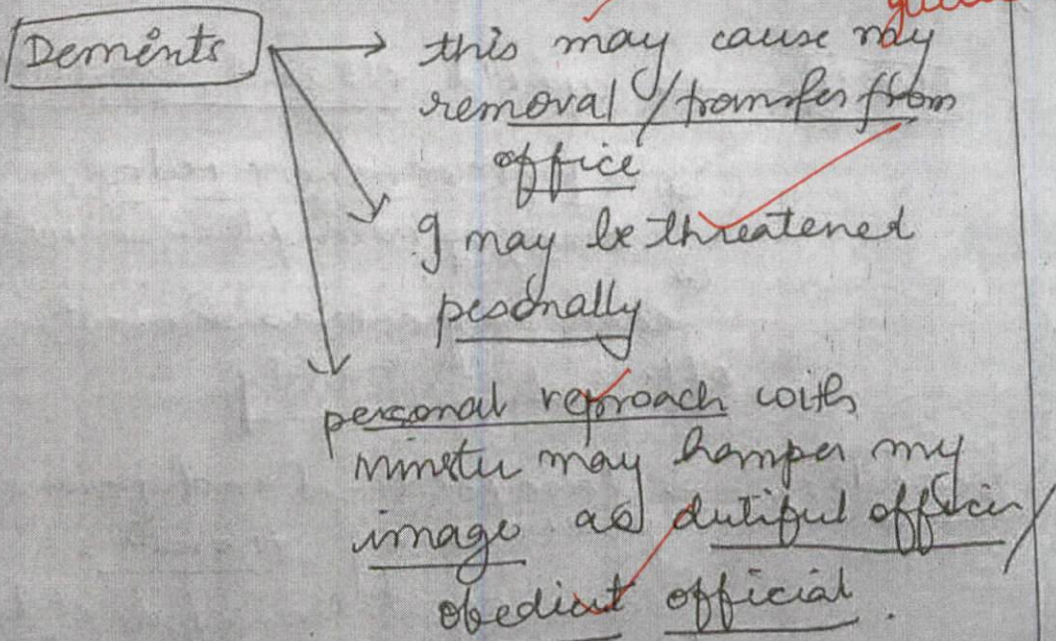 Demerits
this may cause my
removal / transfer from
office
I may be threatened
pesonally
personal reproach with
minster may hamper my
image as dutiful officer /
obedient official.